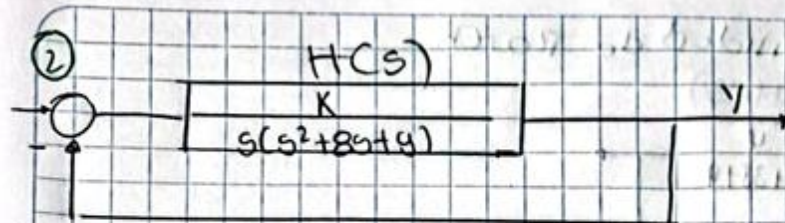 ②
H(S)
K
s(s²+8s+y)
Y
-